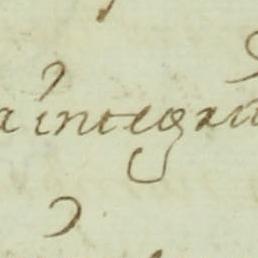 a integra